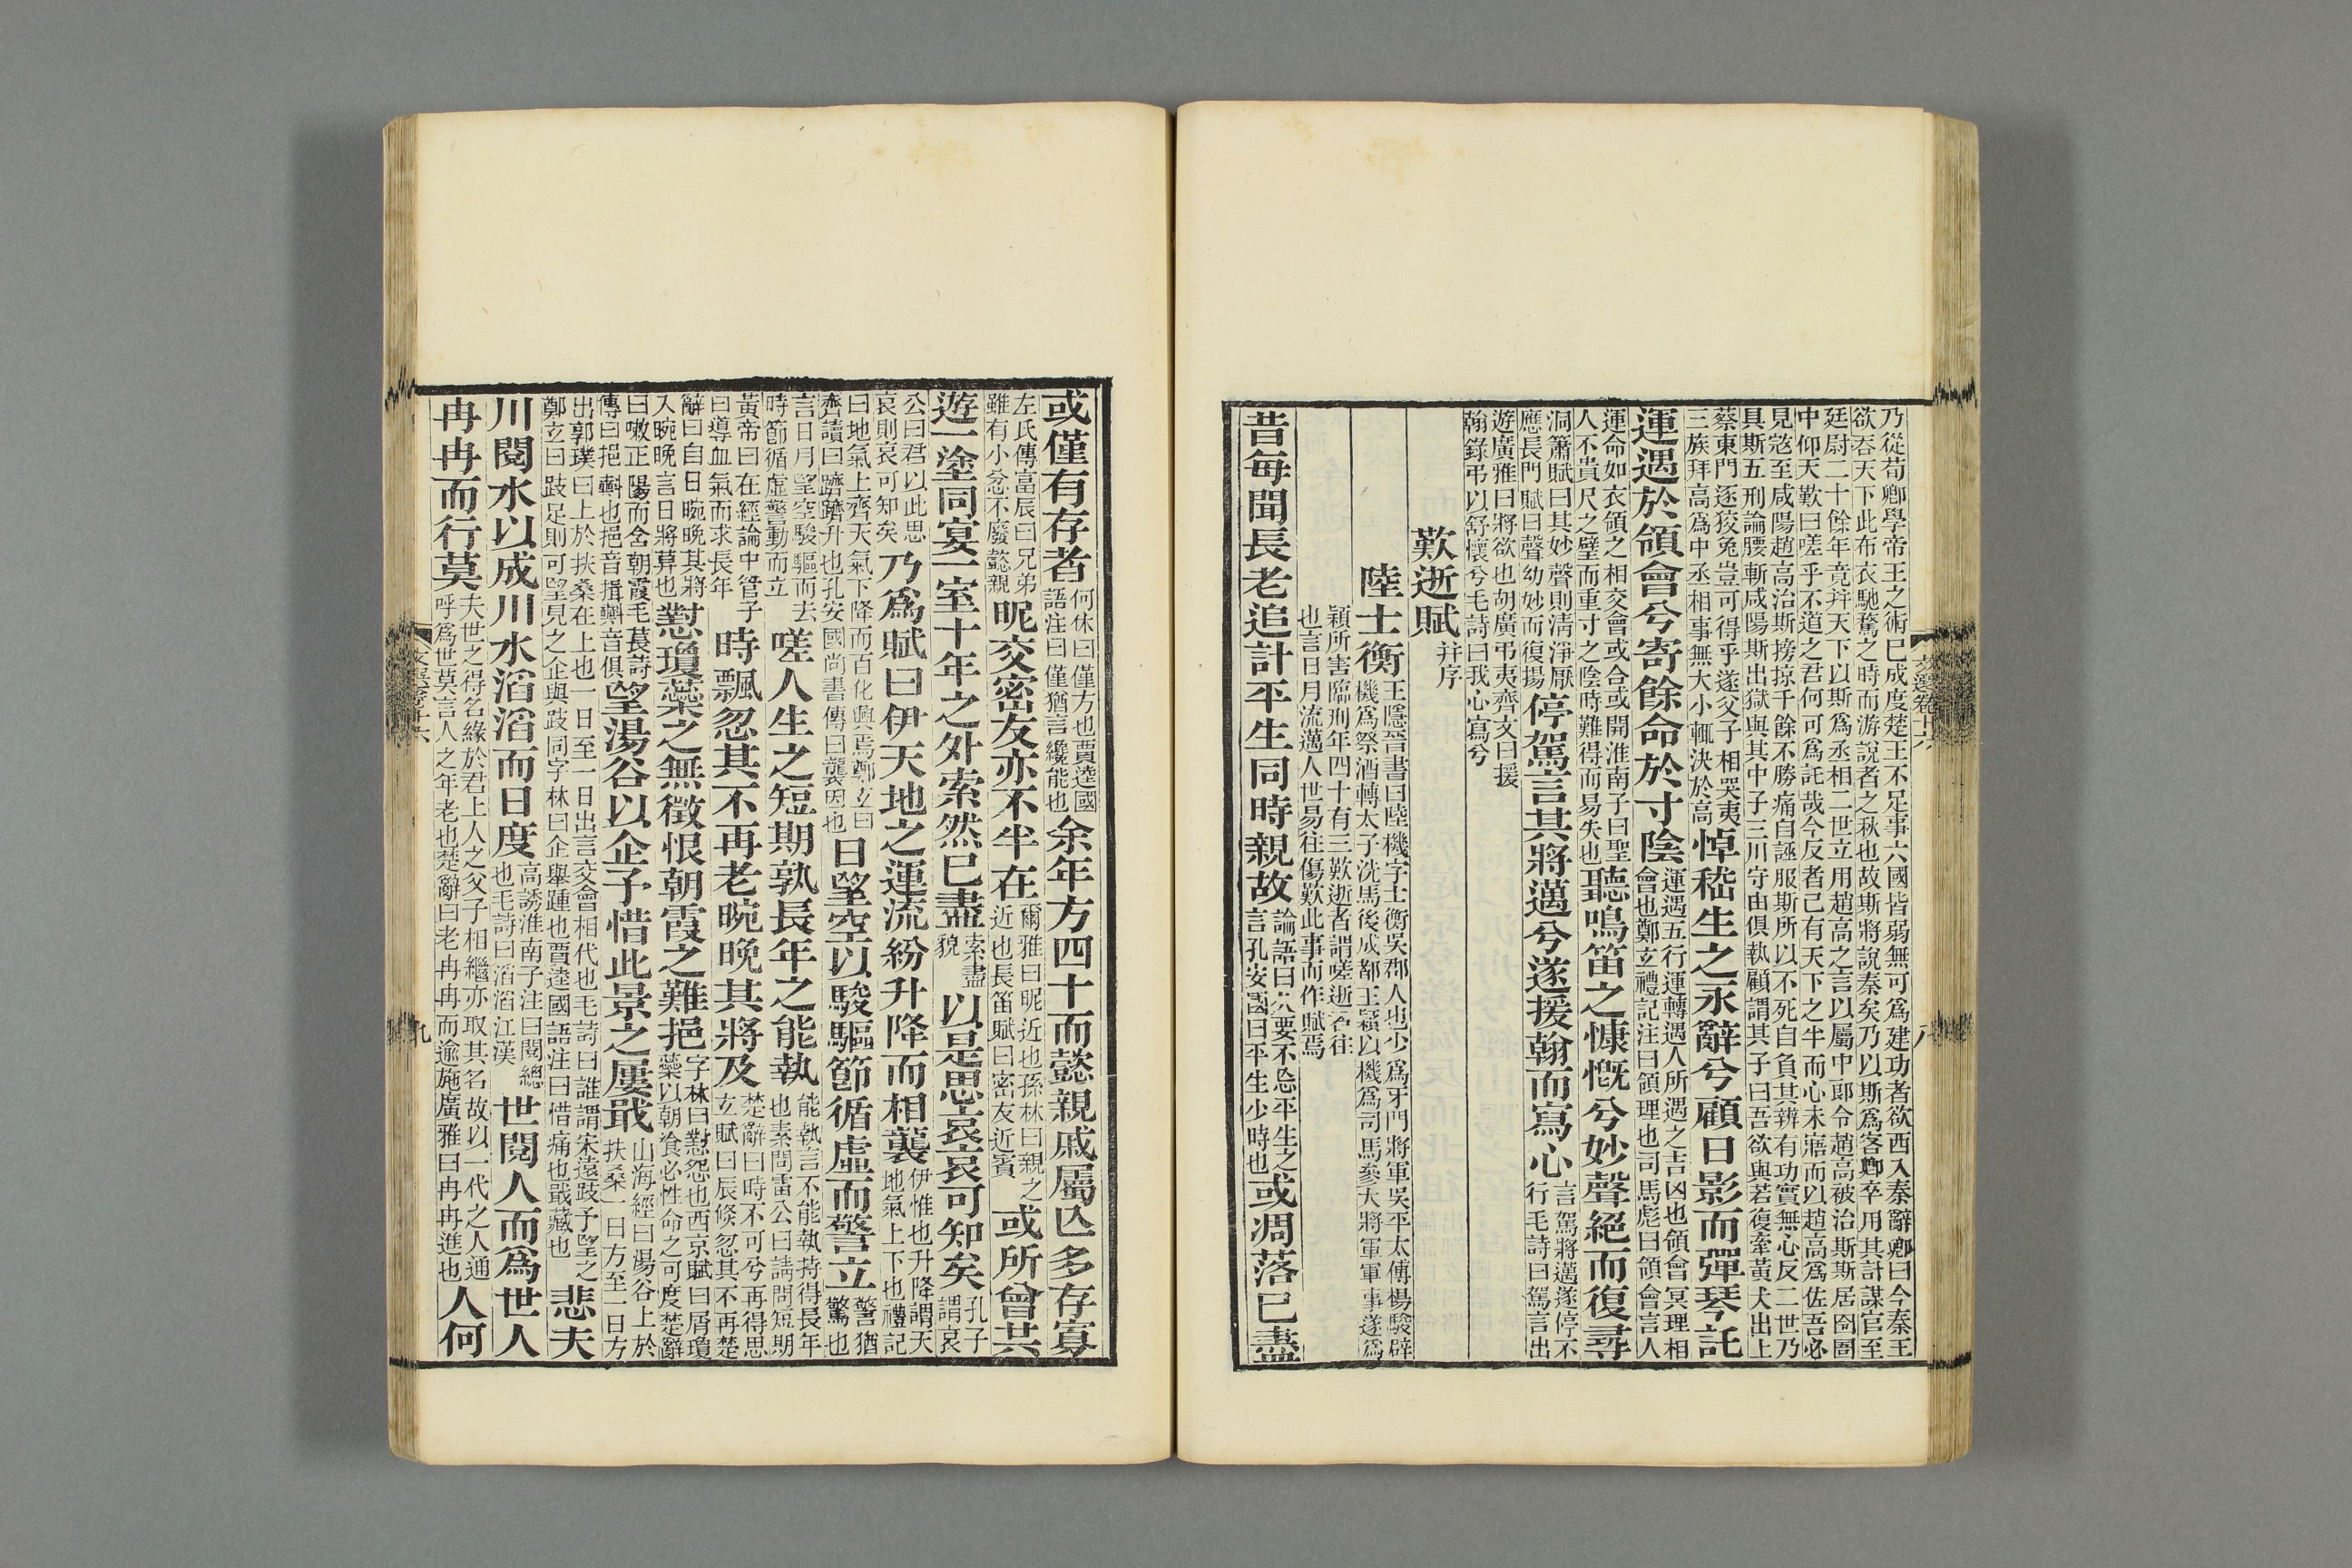 乃從荀卿學帝王之術已成度楚王不足事六國皆弱無可爲建功者欲西入秦辭卿曰今秦王
欲吞天下此布衣馳騖之時而游說者之秋也故斯將說秦矣乃以斯爲客卿卒用其計謀官至
廷尉二十餘年竟并天下以斯爲丞相二世立用趙高之言以屬中郎令趙高被治斯斯居囹圄
中仰天歎曰嗟乎不道之君何可爲託哉今反者已有天下之半而心未寤而以趙高爲佐吾必
見寇至咸陽趙高治斯搒掠千餘不勝痛自誣服斯所以不死自負其辨有功實無心反二世乃
具斯五刑論腰斬咸陽斯出獄與其中子三川守由俱執顧謂其子曰吾欲與若復牽黃犬出上
蔡東門逐狡兔豈可得乎遂父子相哭夷三族拜高爲中丞相事無大小輒決於高悼嵇生之永辭兮顧日影而彈琴託
運遇於領會兮寄餘命於寸陰運遇五行運轉遇人所遇之吉凶也領會冥理相會也鄭玄禮記注曰領理也司馬彪曰領會言人
運命如衣領之相交會或合或開淮南子曰聖人不貴尺之璧而重寸之陰時難得而易失也聽鳴笛之慷慨兮妙聲絕而復尋
洞簫賦曰其妙聲則清淨厭應長門賦曰聲幼妙而復揚停駕言其將邁兮遂援翰而寫心言駕將邁遂停不行毛詩曰駕言出
遊廣雅曰將欲也胡廣弔夷齊文曰援翰錄弔以舒懷兮毛詩曰我心寫兮
歎逝賦并序
陸士衡王隱晉書曰陸機字士衡吳郡人也少爲牙門將軍吳平太傅楊駿辟機爲祭酒轉太子洗馬後成都王穎以機爲司馬參大將軍軍事遂爲
穎所害臨刑年四十有三歎逝者謂嗟逝者往也言日月流邁人世易往傷歎此事而作賦焉
昔每聞長老追計平生同時親故論語曰久要不忘平生之言孔安國曰平生少時也或凋落已盡
或僅有存者何休曰僅方也賈逵國語注曰僅猶言纔能也余年方四十而懿親戚屬亾多存寡
左氏傳富辰曰兄弟雖有小忿不廢懿親昵交密友亦不半在爾雅曰昵近也孫林曰親之近也長笛賦曰密友近賓或所曾共
遊一塗同宴一室十年之外索然已盡索盡貌以是思哀哀可知矣孔子謂哀
公曰君以此思哀則哀可知矣乃爲賦曰伊天地之運流紛升降而相襲伊惟也升降謂天地氣上下也禮記
曰地氣上齊天氣下降而百化興焉鄭玄曰齊讀曰躋躋升也孔安國尚書傳曰襲因也日望空以駿驅節循虛而警立警猶驚也
言日月望空駿驅而去時節循虛警動而立嗟人生之短期孰長年之能執能執言不能執持得長年也素問雷公曰請問短期
黃帝曰在經論中管子曰導血氣而求長年時飄忽其不再老晼晚其將及楚辭曰時不可兮再得思玄賦曰辰倏忽其不再楚
辭曰白日晼晚其將入晼晚言日將暮也懟瓊蘂之無徵恨朝霞之難挹字林曰懟怨也西京賦曰屑瓊蘂以朝飡必性命之可度楚辭
曰嗽正陽而含朝霞毛萇詩傳曰挹㪺也挹音揖㪺音俱望湯谷以企予惜此景之屢戢山海經曰湯谷上於扶桑一日方至一日方
出郭璞曰上於扶桑在上也一日至一日出言交會相代也毛詩曰誰謂宋遠跂予望之鄭玄曰跂足則可望見之企與跂同字林曰企舉踵也賈逵國語注曰惜痛也戢藏也悲夫
川閱水以成川水滔滔而日度高誘淮南子注曰閱總也毛詩曰滔滔江漢世閱人而爲世人
冉冉而行莫夫世之得名緣於君上人之父子相繼亦取其名故以一代之人通呼爲世莫言人之年老也楚辭曰老冉冉而逾施廣雅曰冉冉進也人何